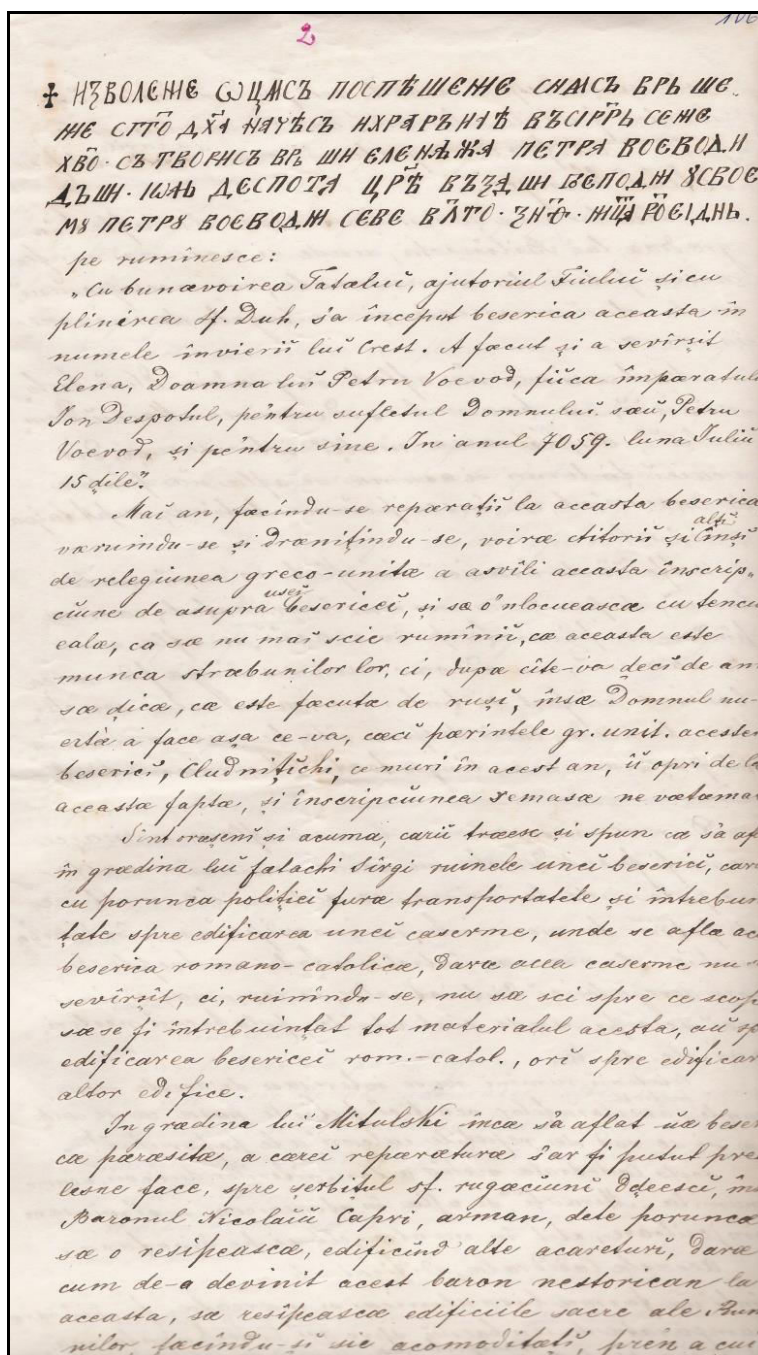 2
106
✝ ИЗВОЛЄНІЄ ѠЦМСЪ ПОСПѢШЕНІЄ СНМСЪ ВРЬ ШЕ
ХВ̅О · СЪ ТВОРИСЪ ВРЬ ШИ ЕЛЕНѢЖА ПЕТРА ВОЄВОДИ
ДЪШИ · ІѠАНЬ ДЕСПОТА ЦР̅Ѣ
МꙊ ПЕТРꙊ ВОЄВОДѪ СЕБЕ
pe rumînesce:
„Cu bunævoirea Tatælui, ajutoriul Fiului și cu
plinirea sf. Duh, s'a început beserica aceasta în
numele învierii lui Crest. A fæcut și a sevîrșit
Elena, Doamna lui Petru Voevod, fiica împæratul
Ion Despotul, pentru sufletul Domnului sæu, Petru
Voevod, și pentru sine. In anul 7059. luna Iuliu
15 dile".
Mai an, fæcîndu-se repærații la aceasta beserica
væruindu-se și drænițindu-se, voiræ ctitorii și alți înși
de relegiunea greco-unitæ a asvîli aceasta înscrip„
ciune de asupra usei besericei, și sæ o 'nlocueascæ cu tencu
ealæ, ca sæ nu mai scie rumînii, cæ aceasta este
munca stræbunilor lor, ci, dupæ cîte-va deci de an
sæ dicæ, cæ este fæcutæ de ruși, însæ Domnul nu-
ertà a face așa ce-va, cæci pærintele gr. unit. acestei
beserici, Cludnițichi, ce muri în acest an, îi opri de la
aceasta faptæ, și înscripciunea remasæ ne vætæma
Sînt orașeni și acuma, carii træesc și spun cæ s'a af
în grædina lui Falachi Sîrgi ruinele unei beserici, car
cu porunca poliției furæ transportatele și întrebuin
țate spre edificarea unei caserme, unde se aflæ ac
beserica romano-catolicæ, daræ acea caserme nu s
sevîrșit, ci, ruinîndu-se, nu sæ sci spre ce scop
sæ se fi întrebuințat tot materialul acesta, au sp
edificarea besericei rom.-catol., ori spre edificar
altor edifice.
In grædina lui Mitulski incæ s'a aflat uæ beser
ca pæræsitæ, a carei repæraturæ s'ar fi putut pre
lesne face, spre șerbitul sf. rugæciuni Ddeesci, în
Baronul Nicolaiu Capri, arman, dete poruncæ
sæ o resipeascæ, edificînd alte acareturi, daræ
cum de-a devinit acest baron nestorican la
aceasta, sæ resipeascæ edificiile sacre ale Rum
nilor, fæcîndu-și sie acomoditæți, pren a cui